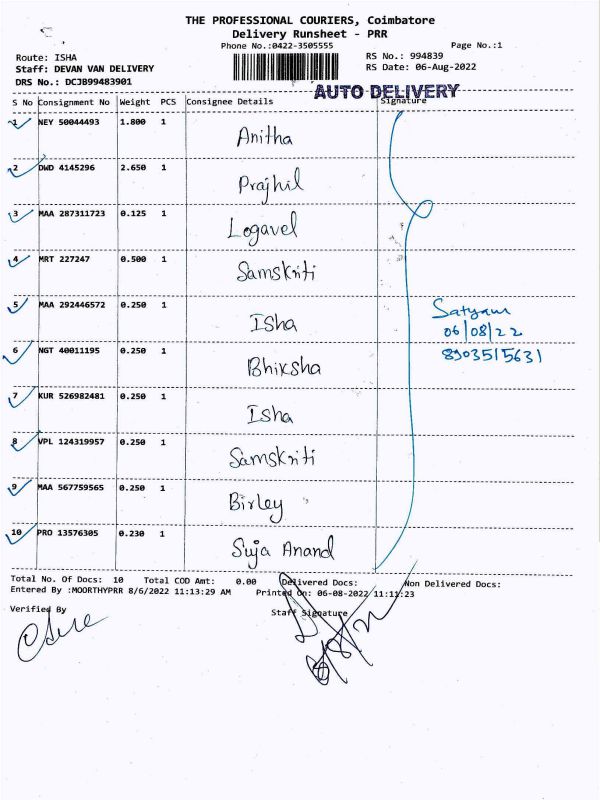 THE PROFESSIONAL COURIERS, Coimbatore
Delivery Runsheet - PRR
Phone No.:0422-3505555 Page No.:1
Route: ISHA RS No.: 994839
Staff: DEVAN VAN DELIVERY RS Date: 06-Aug-2022
DRS No.: DCJB99483901
AUTO DELIVERY
S No Consignment No Weight PCS Consignee Details Signature
1 NEY 50044493 1.800 1 Anitha
2 DWD 4145296 2.650 1 Prajhil
3 MAA 287311723 0.125 1 Logavel
4 MRT 227247 0.500 1 Samskriti
5 MAA 292446572 0.250 1 Isha
Satyam
06/08/22
8903515631
6 NGT 40011195 0.250 1 Bhiksha
7 KUR 526982481 0.250 1 Isha
8 VPL 124319957 0.250 1 Samskriti
9 MAA 567759565 0.250 1 Birley
10 PRO 13576305 0.230 1 Suja Anand
Total No. Of Docs: 10 Total COD Amt: 0.00 Delivered Docs: Non Delivered Docs:
Entered By :MOORTHYPRR 8/6/2022 11:13:29 AM Printed On: 06-08-2022 11:11:23
Verified By Staff Signature